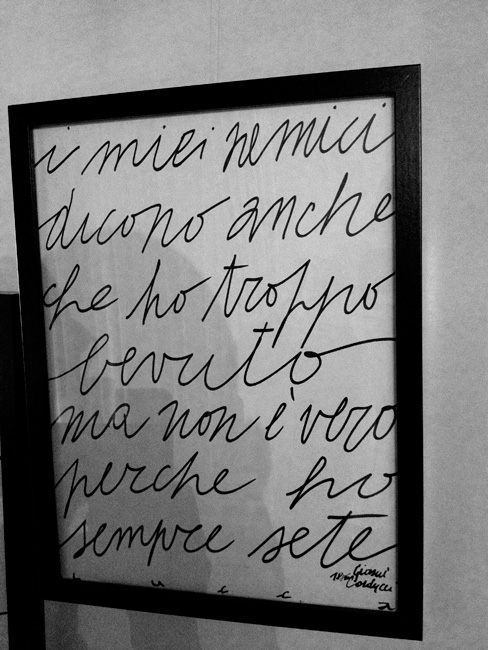 i miei nemici
dicono anche
che ho troppo
bevuto
ma non è vero
perche ho
sempre sete
Giosuè
Carducci